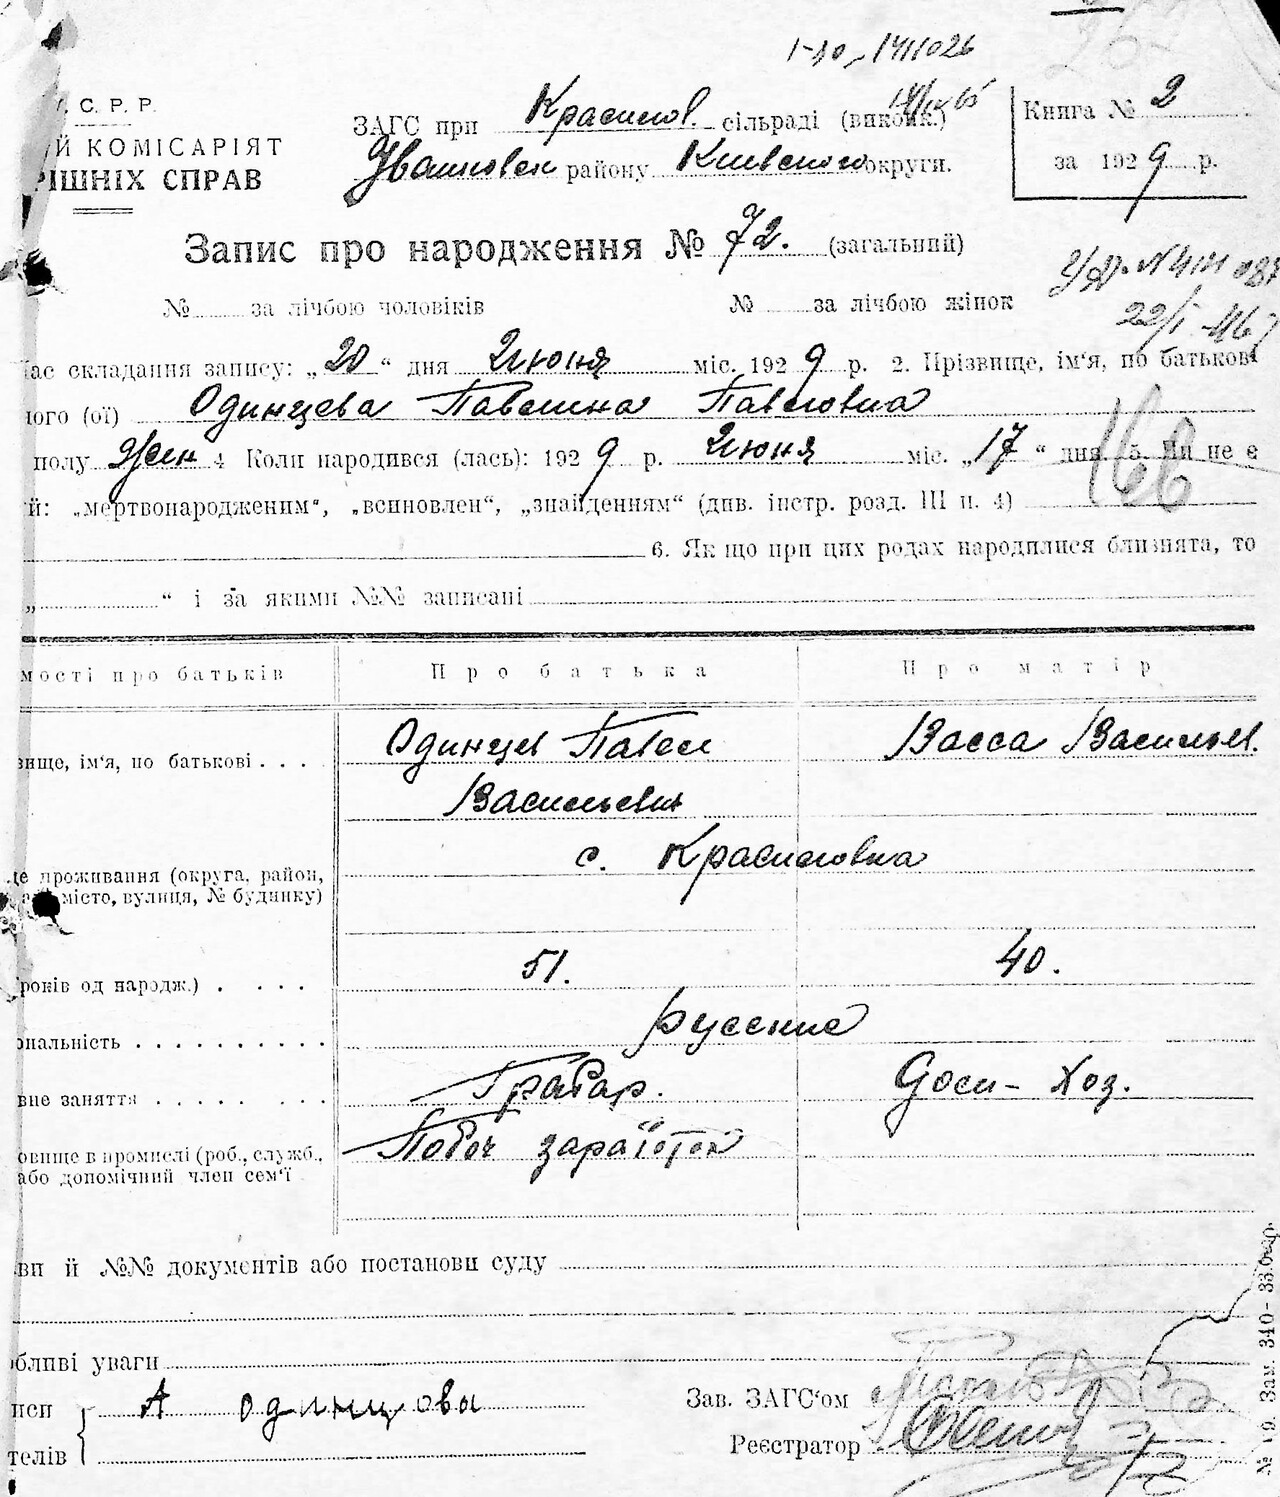 С. Р. Р.
Й КОМІСАРІЯТ
РІШНІХ СПРАВ
ЗАГС при Красилов. сільраді (викон.)
Іванковск району Киевского округи.
Книга № 2
за 1929 р.
Запис про народження № 72. (загальний)
№ за лічбою чоловіків № за лічбою жінок
час складання запису: „20“ дня Июня міс. 1929 р. 2. Прізвище, ім'я, по батькові
ного (ої) Одинцева Павлина Павловна
полу жен 4 Коли народився (лась): 1929 р. Июня міс. „17“ дня 5. Чи не є
й: „мертвонародженим“, „всиновлен“, „знайденням“ (див. інстр. розд. III п. 4)
6. Якщо при цих родах народилися близнята, то
„ “ і за якими №№ записані
мості про батьків Про батька Про матір
вище, ім'я, по батькові Одинцев Павел Васса Васильев.
Васильевич
с. Красиловка
це проживання (округа, район,
місто, вулиця, № будинку)
років од народж.) 51. 40.
ональність русские
вне заняття Грабар. Дом-Хоз.
овище в промислі (роб., служб., Побоч заработок
або допомічний член сем'ї
ви й №№ документів або постанови суду
обливі уваги
писи А одинцовы
телів
Зав. ЗАГС'ом
Реєстратор